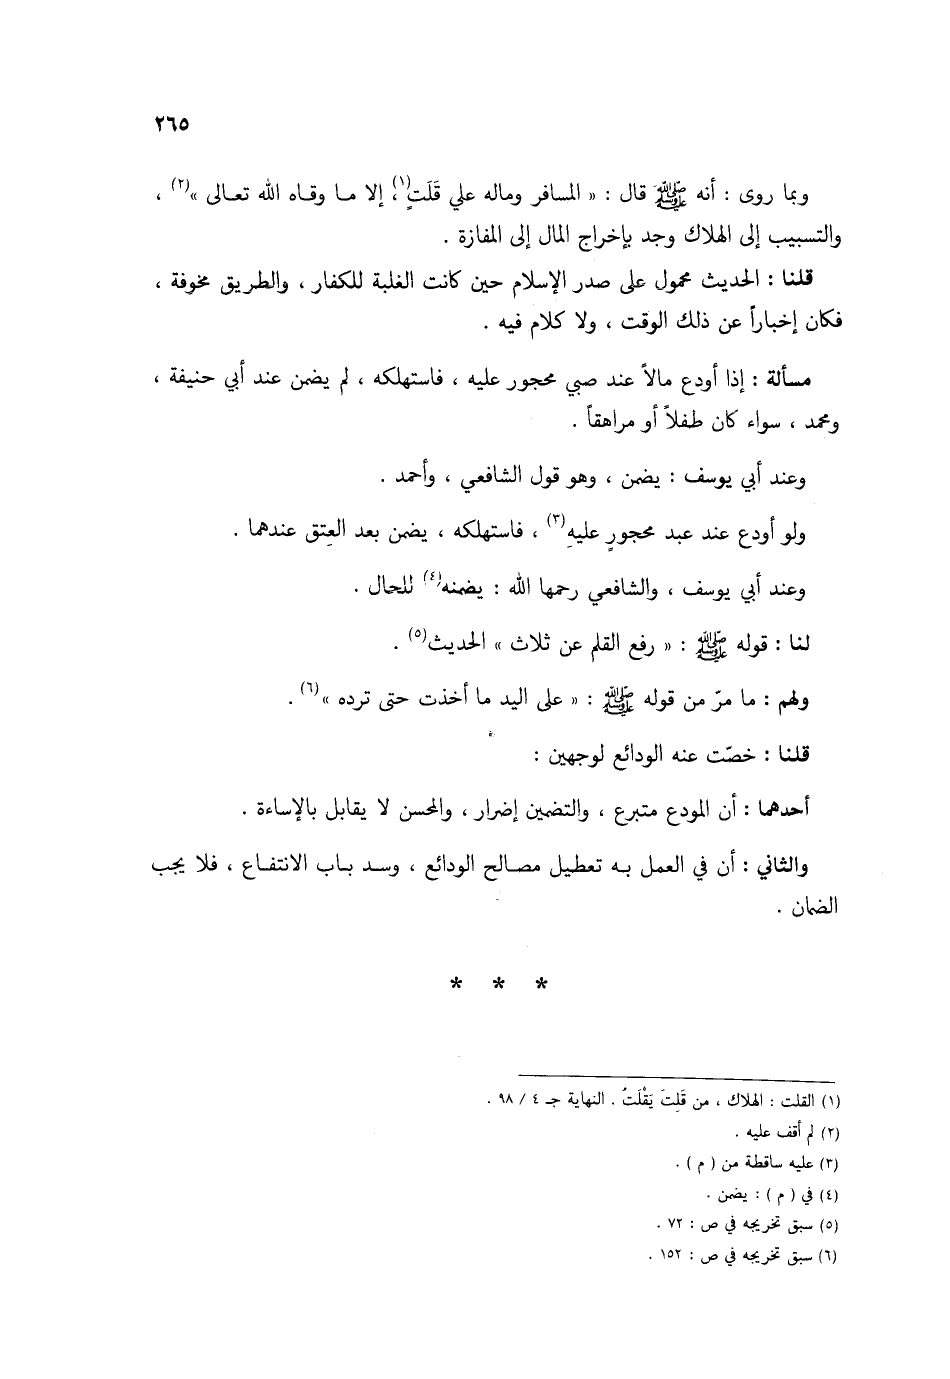 ٢٦٥
وبما روى : أنه ﷺ قال : « المسافر وماله علي قَلَتٍ(١)، إلا مـا وقـاه الله تعـالى »(٢) ،
والتسبيب إلى الهلاك وجد بإخراج المال إلى المفازة .
قلنا : الحديث محمول على صدر الإسلام حين كانت الغلبة للكفار ، والطريق مخوفة ،
فكان إخباراً عن ذلك الوقت ، ولا كلام فيه .
مسألة : إذا أودع مالاً عند صبي محجور عليه ، فاستهلكه ، لم يضمن عند أبي حنيفة ،
ومحمد ، سواء كان طفلاً أو مراهقاً .
وعند أبي يوسف : يضمن ، وهو قول الشافعي ، وأحمد .
ولو أودع عند عبد محجورٍ عليهِ(٣) ، فاستهلكه ، يضمن بعد العتق عندهما .
وعند أبي يوسف ، والشافعي رحمها الله : يضمنه(٤) للحال .
لنا : قوله ﷺ : « رفع القلم عن ثلاث » الحديث(٥) .
ولهم : ما مرّ من قوله ﷺ : « على اليد ما أخذت حتى ترده »(٦) .
قلنا : خصّت عنه الودائع لوجهين :
أحدهما : أن المودع متبرع ، والتضمين إضرار ، والمحسن لا يقابل بالإساءة .
والثاني : أن في العمل بـه تعطيل مصـالح الودائع ، وسـد بـاب الانتفـاع ، فلا يجب
الضمان .
* * *
(١) القلت : الهلاك ، من قَلِتَ يَقْلَتُ . النهاية جـ ٤ / ٩٨ .
(٢) لم أقف عليه .
(٣) عليه ساقطة من ( م ) .
(٤) في ( م ) : يضمن .
(٥) سبق تخريجه في ص : ٧٢ .
(٦) سبق تخريجه في ص : ١٥٢ .